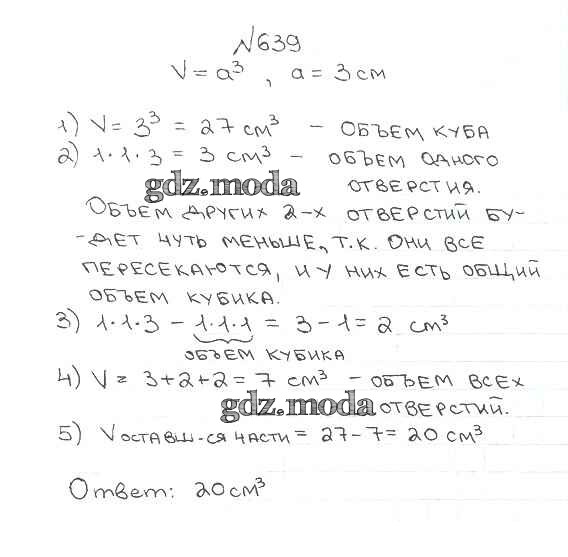 №639
V = a³, a = 3 см
1) V = 3³ = 27 см³ – ОБЪЕМ КУБА
2) 1·1·3 = 3 см³ – ОБЪЕМ ОДНОГО
gdz.moda ОТВЕРСТИЯ.
ОБЪЕМ ДРУГИХ 2-Х ОТВЕРСТИЙ БУ-
-ДЕТ ЧУТЬ МЕНЬШЕ, Т.К. ОНИ ВСЕ
ПЕРЕСЕКАЮТСЯ, И У НИХ ЕСТЬ ОБЩИЙ
ОБЪЕМ КУБИКА.
3) 1·1·3 – 1·1·1 = 3 – 1 = 2 см³
ОБЪЕМ КУБИКА
4) V = 3+2+2 = 7 см³ – ОБЪЕМ ВСЕХ
gdz.moda ОТВЕРСТИЙ.
5) V ОСТАВШ-СЯ ЧАСТИ = 27–7 = 20 см³
Ответ: 20 см³